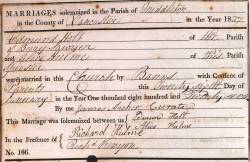 MARRIAGES solemnized in the Parish of Middleton
in the County of Lancaster in the Year 18
Edmund Holt of the
of Bury
and Alice Hulme of this
were married in this Church by Banns with Consent of
Parents this Twenty Day of
January in the Year One thousand eight hundred and
By me James Archer Curate
This Marriage was solemnized between us Edmund Holt
Alice Hulme
In the Presence of Richard Hulme
Kenyon
No. 166.